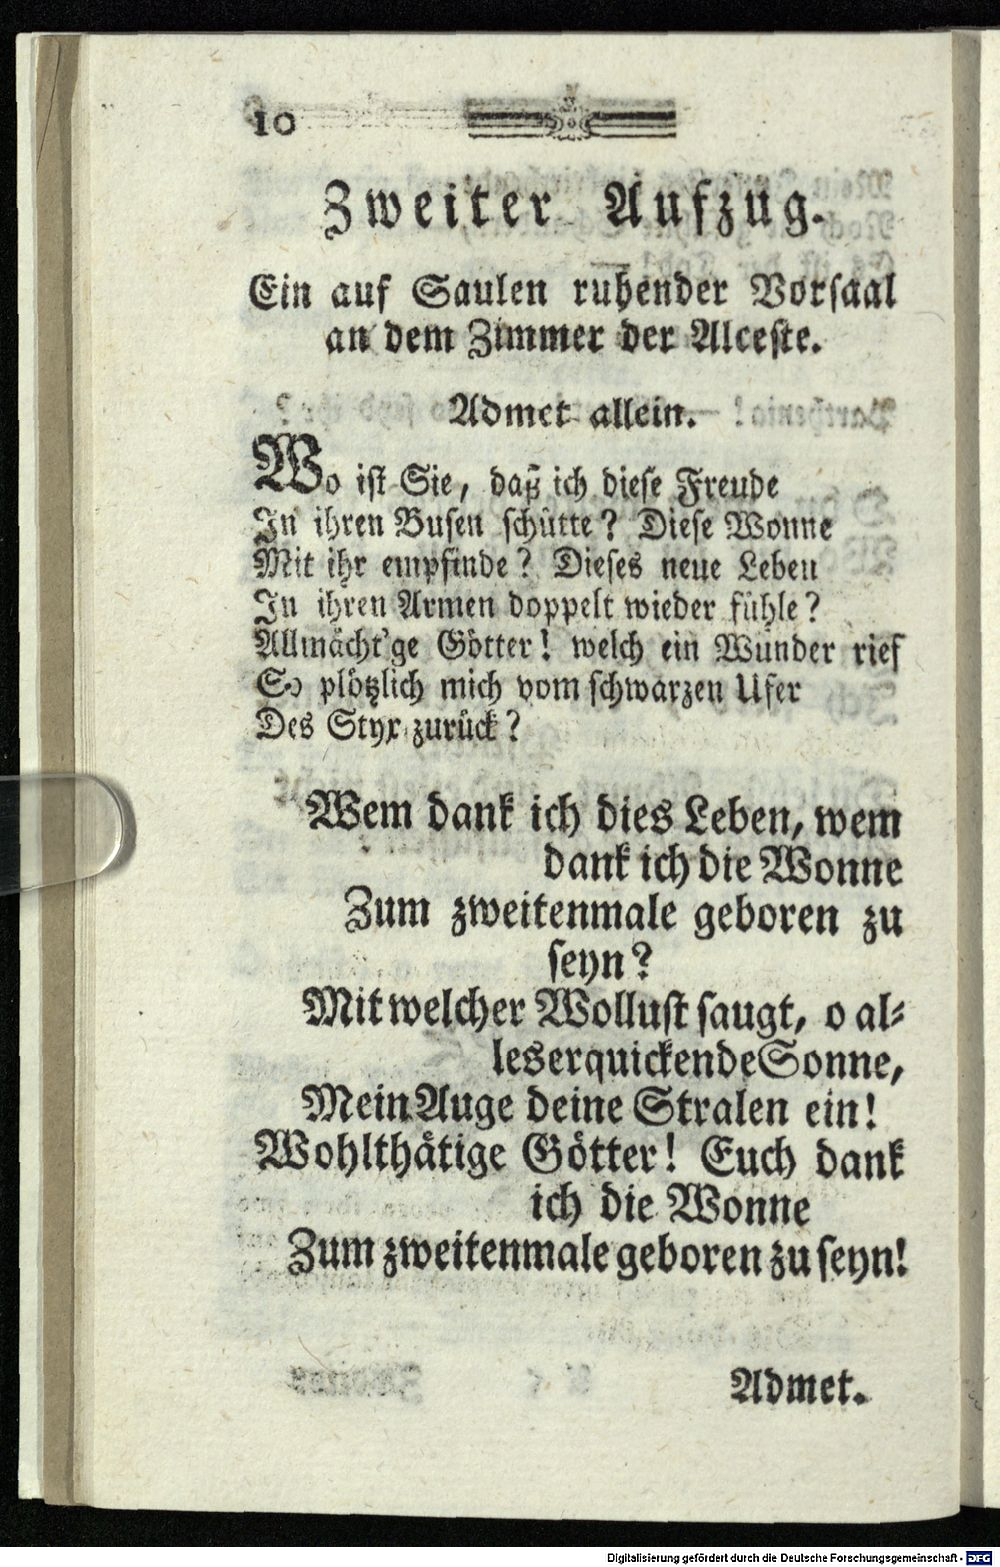 10
Zweiter Aufzug.
Ein auf Saulen ruhender Vorsaal
an dem Zimmer der Alceste.
Admet allein.
Wo ist Sie, daß ich diese Freude
In ihren Busen schütte? Diese Wonne
Mit ihr empfinde? Dieses neue Leben
In ihren Armen doppelt wieder fühle?
Allmächt'ge Götter! welch ein Wunder rief
So plötzlich mich vom schwarzen Ufer
Des Styx zurück?
Wem dank ich dies Leben, wem
dank ich die Wonne
Zum zweitenmale geboren zu
seyn?
Mit welcher Wollust saugt, o al-
leserquickende Sonne,
Mein Auge deine Stralen ein!
Wohlthätige Götter! Euch dank
ich die Wonne
Zum zweitenmale geboren zu seyn!
Admet.
Digitalisierung gefördert durch die Deutsche Forschungsgemeinschaft - DFG